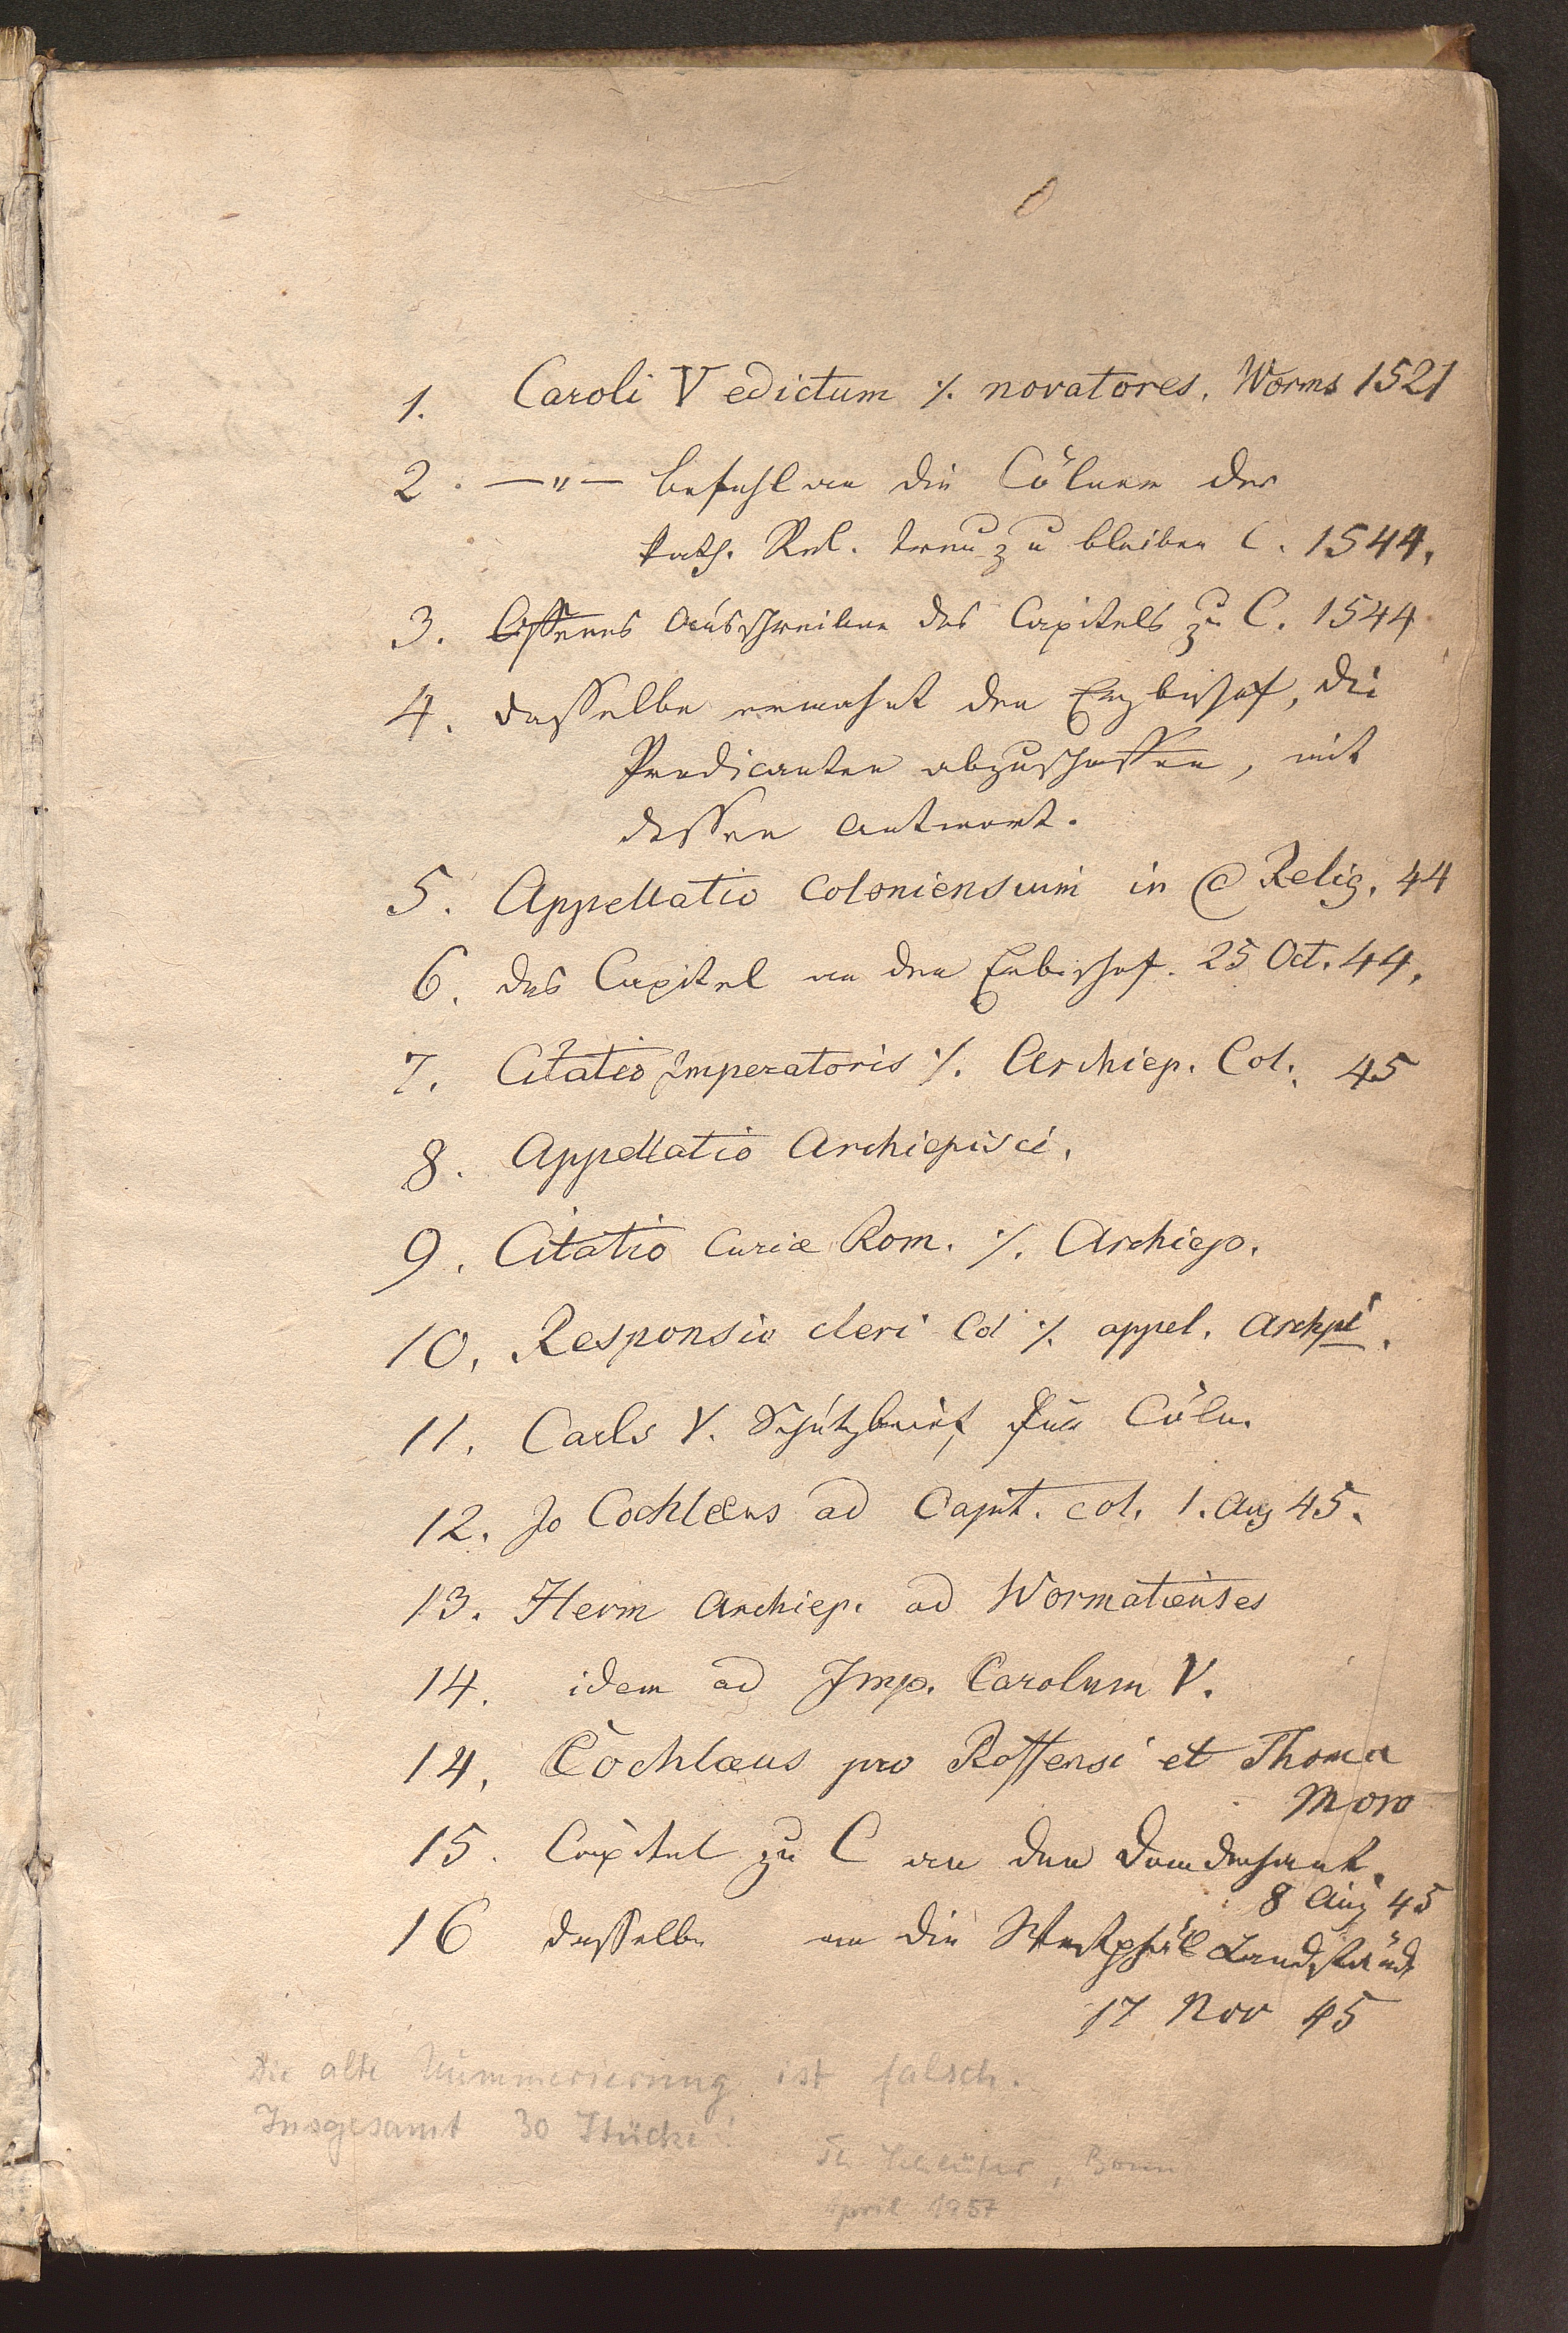 1. Caroli V edictum ./. novatores. Worms 1521
2. —„— befehl an die Cölner der
kath. Rel. treu zu bleiben C. 1544.
3. Offenes Ausschreiben des Capitels zu C. 1544
4. dasselbe ermahnt den Erzbischof, die
Predicanten abzuschaffen, mit
dessen Antwort.
5. Appellatio Coloniensium in C Relig. 44
6. das Capitel an den Erbischof. 25 Oct. 44.
7. Citatio Imperatoris ./. Archiep. Col. 45
8. Appellatio Archiepisci.
9. Citatio Curiæ Rom. ./. Archiep.
10. Responsio cleri Col ./. appel. Archpi.
11. Carls V. Schutzbrief für Cöln.
12. Jo Cochlæus ad Capit. col. 1. Aug 45.
13. Herm Archiep. ad Wormatienses
14. idem ad Imp. Carolum V.
14. Cochlæus pro Roffensi et Thoma
Moro
15. Capitel zu C an den Domdechant.
8 Aug 45
16 dasselbe an die Westphäl Landständ
17 Nov 45
Die alte Nummerierung ist falsch.
Insgesamt 30 Stücke!
Bonn
April 1957